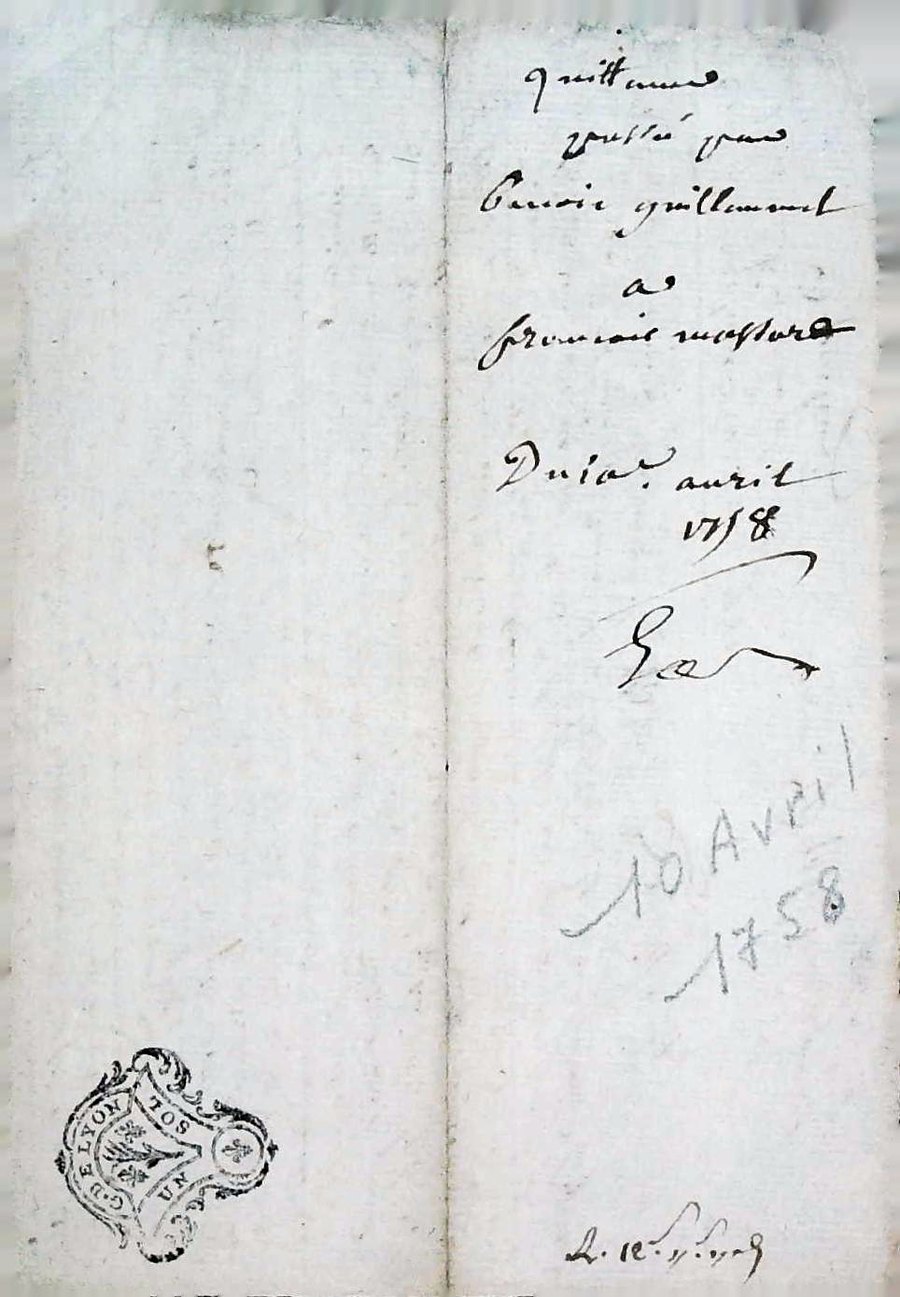 quittance
passé par
benoit guillermet
a
francois massard
Du 10e. avril
1758
10 Avril
1758
G. DE LYON
UN SOL